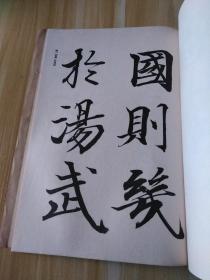 國則幾
於湯武